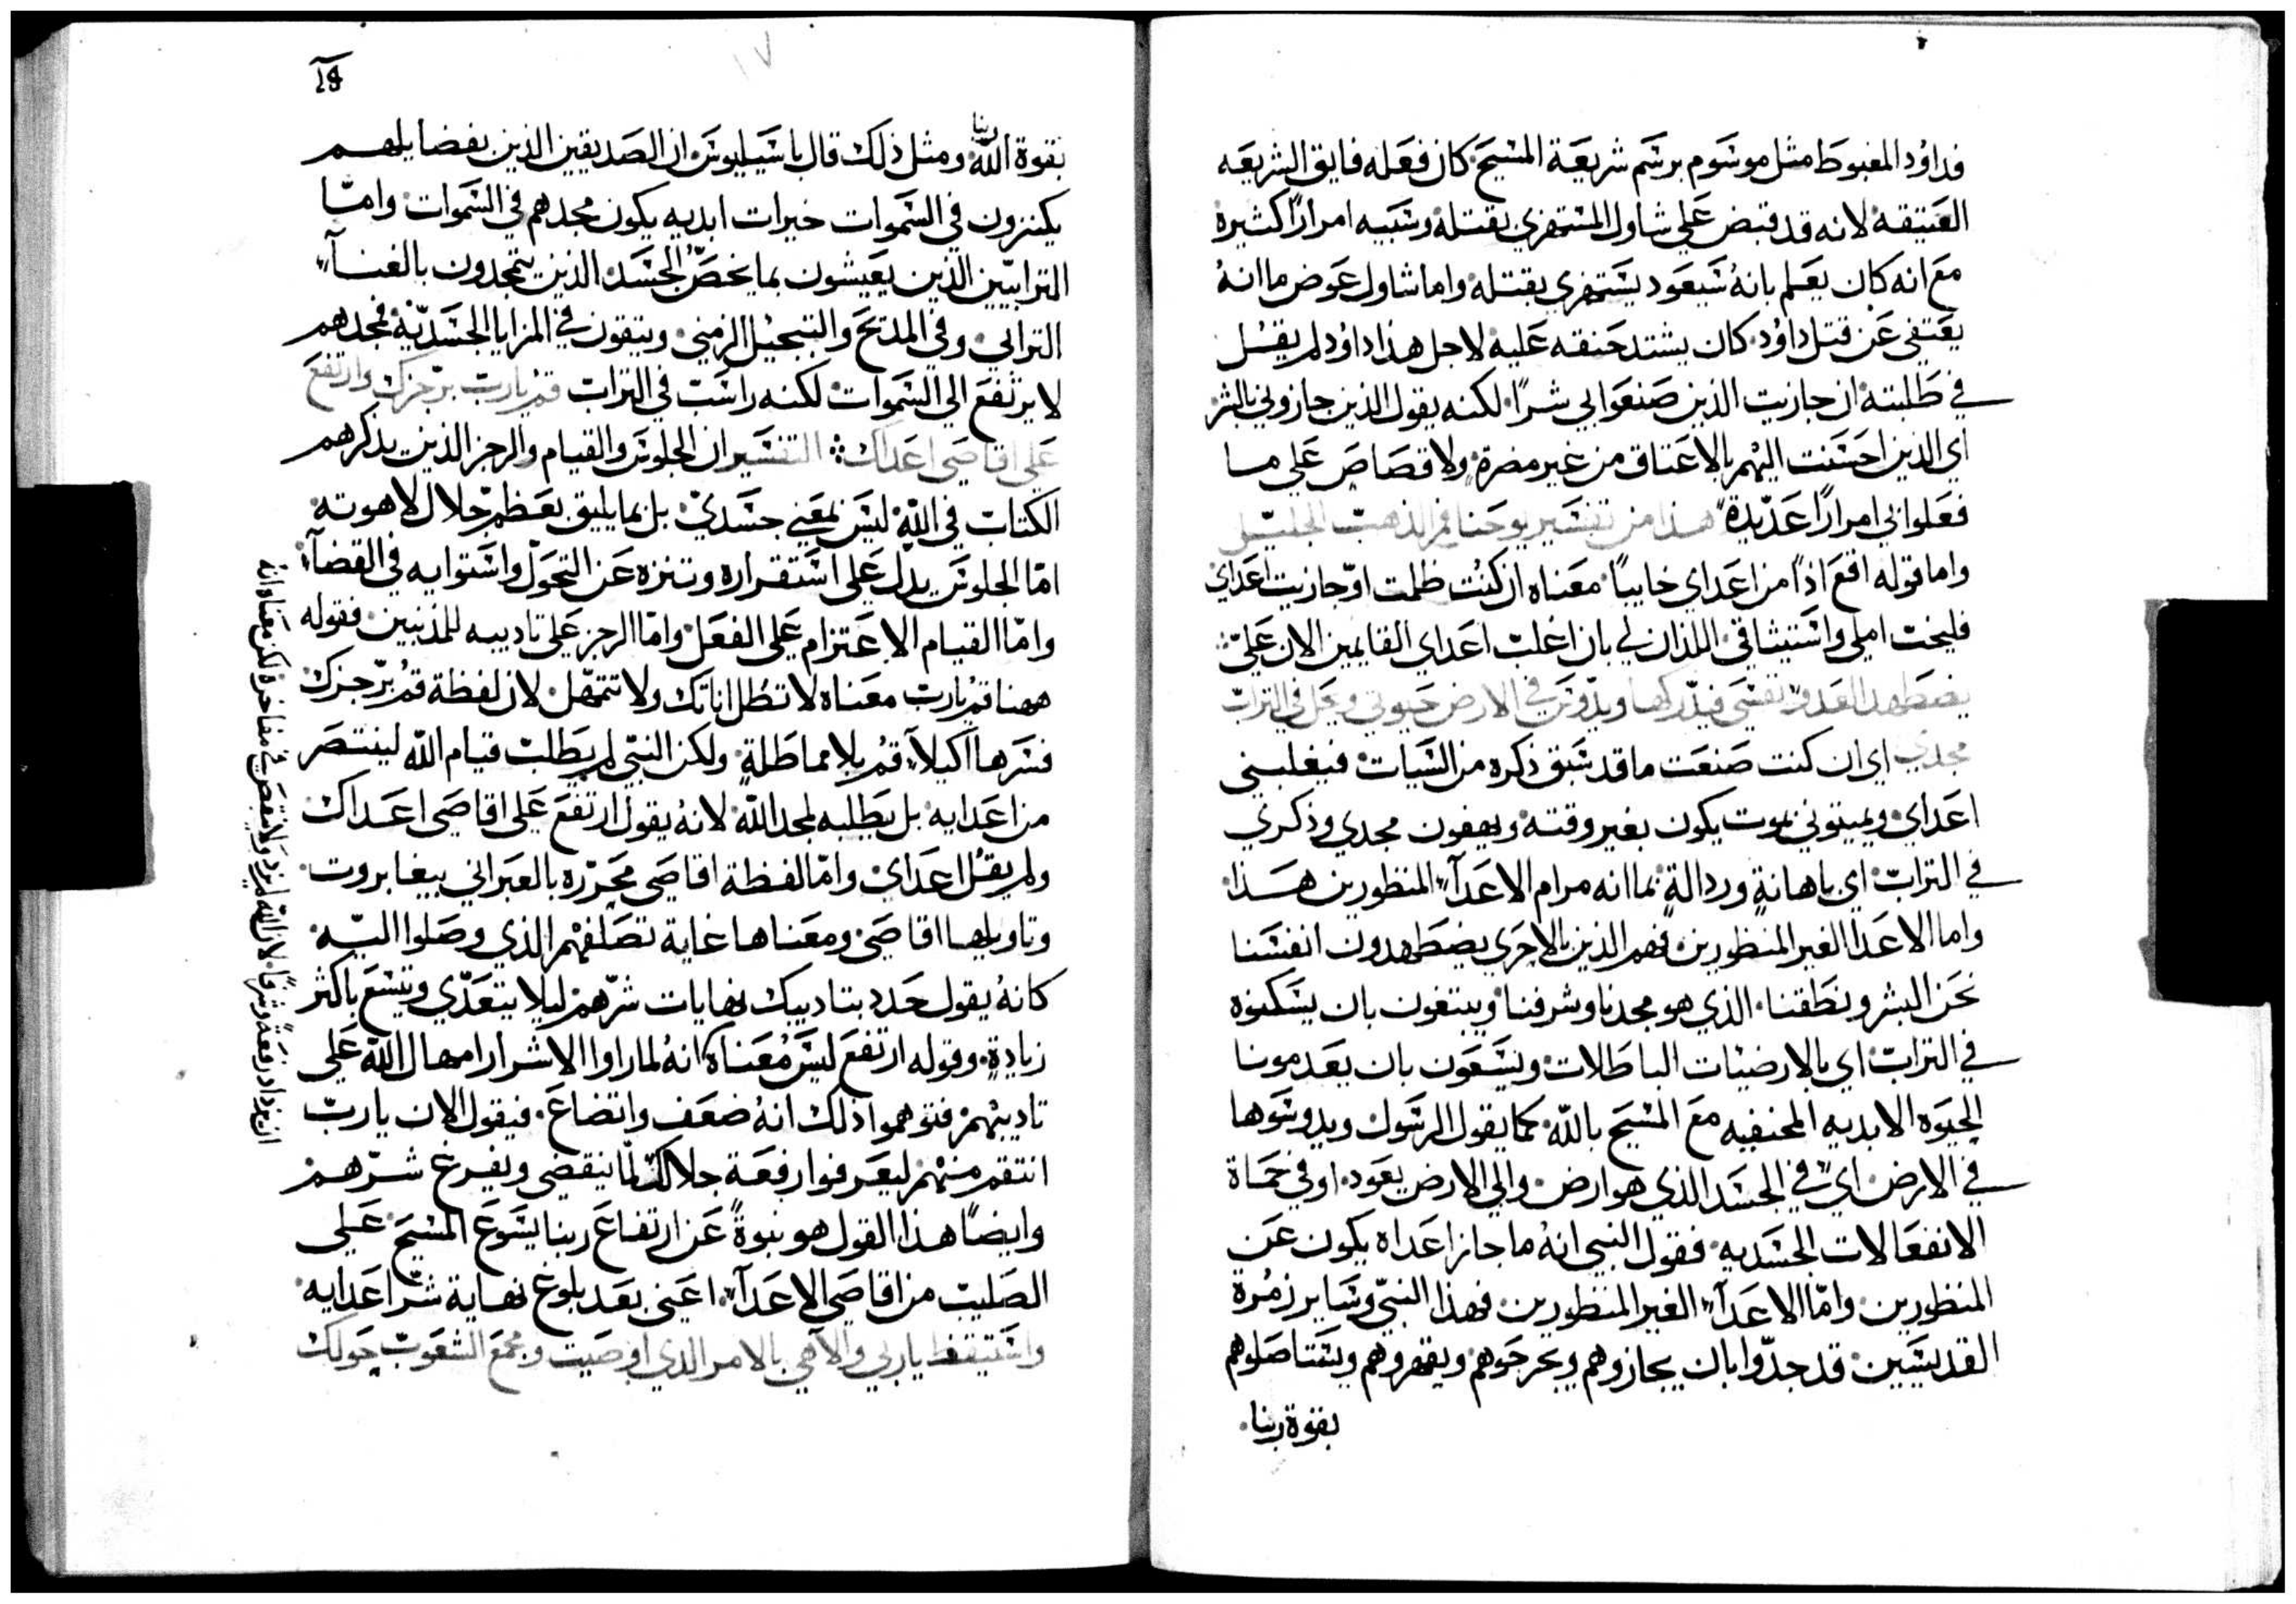 فداوُد المغبوط مثل موسوم برسم شريعة المسيح كان فعله فايق الشريعه
العتيقة لانه قد قبض على شاول المستهزي بقتله وسيبه امراراً كثيرة
مع انه كان يعلم بانهُ سيعود يستهزي بقتله واما شاول عوض ما انهُ
يعتفي عن قتل داوُد كان يشتد حنقه عليه لاجل هذا داوُد لم يقُل
في طلبته ان جازيت الذين صنعوا بي شراً لكنه يقول الذين جازوني بالشر
اي الذين احسنت اليهم بالاعتاق من غير مضرةٍ ولا قصاص على ما
فعلوا بي امراراً عديدة هذا من تفسير يوحنا فم الذهب الجليل
واما قوله اقع اذاً من اعداي خايباً معناه ان كنُت ظلمت او جازيت اعداي
فليخت املي واستيثاقي اللذان لي بان اغلب اعداي القايمين الان عليّ
يضطهد العدو نفسي فيدركها ويدوس في الارض حيوتي ويحل في التراب
مجدي اي ان كنت صنعت ما قد سبق ذكره من السيات فيغلبني
اعداي ويميتوني بموت يكون بغير وقته ويهفون مجدي وذكري
في التراب اي باهانةٍ ورذالةٍ بما انه مرام الاعدآء المنظورين هذا
واما الاعدا الغير المنظورين فهم الذين بالاحرى يضطهدون انفسنا
نحن البشر ونطقنا الذي هو مجدنا وشرفنا ويبتغون بان يسكنوه
في التراب اي بالارضيات الباطلات ويسعون بان يعدمونا
الحيوه الابديه المختفيه مع المسيح بالله كما يقول الرسول ويدوسوها
في الارض اي في الجسد الذي هو ارض والى الارض يعود او في حماة
الانفعالات الجسديه فقول النبي انهُ ما جاز اعداه يكون عن
المنظورين وامّا الاعدآء الغير المنظورين فهذا النبيّ وساير زمُرة
القديسين قد جدّوا بان يجازوهم ويحرجوهم ويقهروهم ويستاصلوهم
بقوة ربنا
18
١٧
بقوة الله ربنا ومثل ذلك قال باسيليوس ان الصديقين الذين بفضايلهم
يكنزون في السموات خيرات ابديه يكون مجدهم في السموات وامّا
الترابيّين الذين يعيشون بما يخصّ الجسد الذين يتمجدون بالغنآء
الترابي وفي المديح والتبجيل الزمني ويثقون في المزايا الجسديّة فمجدهم
لا يرتفع الي السموات لكنه راسب في التراب قم يا رب برجزك وارتفع
على اقاصي اعداك التفسير ان الجلوس والقيام والرجز الذين يذكرهم
الكتاب في الله ليس بمعني جسديّ بل بما يليق بعظم جلال لاهوته
امّا الجلوس يدل على استقراره وتنزه عن التحول واستوايه في القضآء
وامّا القيام الاعتزام على الفعل وامّا الرجز على تاديبه للمذنبين فقوله
ههنا قم يا رب معناه لا تطل اناتك ولا تتمهل لان لفظة قم برجزك
فسرها اكيلآء قم بلا مماطلةٍ ولكن النبي لم يطلب قيام الله لينتصر
من اعدايه بل يطلبه لمجد الله لانهُ يقول ارتفع على اقاصي اعداك
ولم يقُل اعداي وامّا لفظة اقاصي محرّره بالعبراني بيغابروت
وتاويلها اقاصي ومعناها غاية تصلفهم الذي وصلوا اليه
كانهُ يقول حدد بتاديبك نهايات شرّهم ليلا يتعدّي ويتسع باكثر
زيادةٍ وقوله ارتفع ليس مُعناه انهُ لما راوا الاشرار امهال الله على
تاديبهم فتوهموا ذلك انهُ ضعف واتضاع فيقول الان يا ربّ
انتقم منهم ليعرفوا رفعة جلالك لمّا ينقضي ويفرغ شرّهم
وايضاً هذا القول هو نبوةً عن ارتفاع ربنا يسوع المسيح على
الصليب من اقاصي الاعدآء اعني بعد بلوغ نهاية شرّ اعدايه
واستيقظ يا ربي والآهي بالامر الذي اوصيت ومجمع الشعوب حولك
ان يزداد رفعةً وشرفاً لان الله لم يزد ولا ينقص في مفاخره لكن معناه انهُ